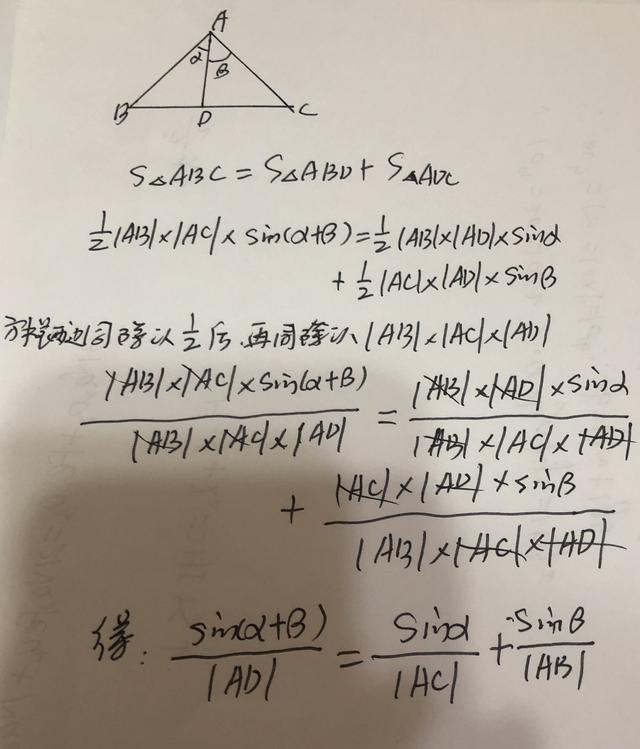 A
α β
B D C
S△ABC = S△ABD + S△ADC
1/2|AB|×|AC|×sin(α+β)=1/2|AB|×|AD|×sinα
+ 1/2|AC|×|AD|×sinβ
方程两边同除以1/2后,再同除以|AB|×|AC|×|AD|
|AB|×|AC|×sin(α+β)/|AB|×|AC|×|AD| = |AB|×|AD|×sinα/|AB|×|AC|×|AD|
+ |AC|×|AD|×sinβ/|AB|×|AC|×|AD|
得: sin(α+β)/|AD| = sinα/|AC| + sinβ/|AB|